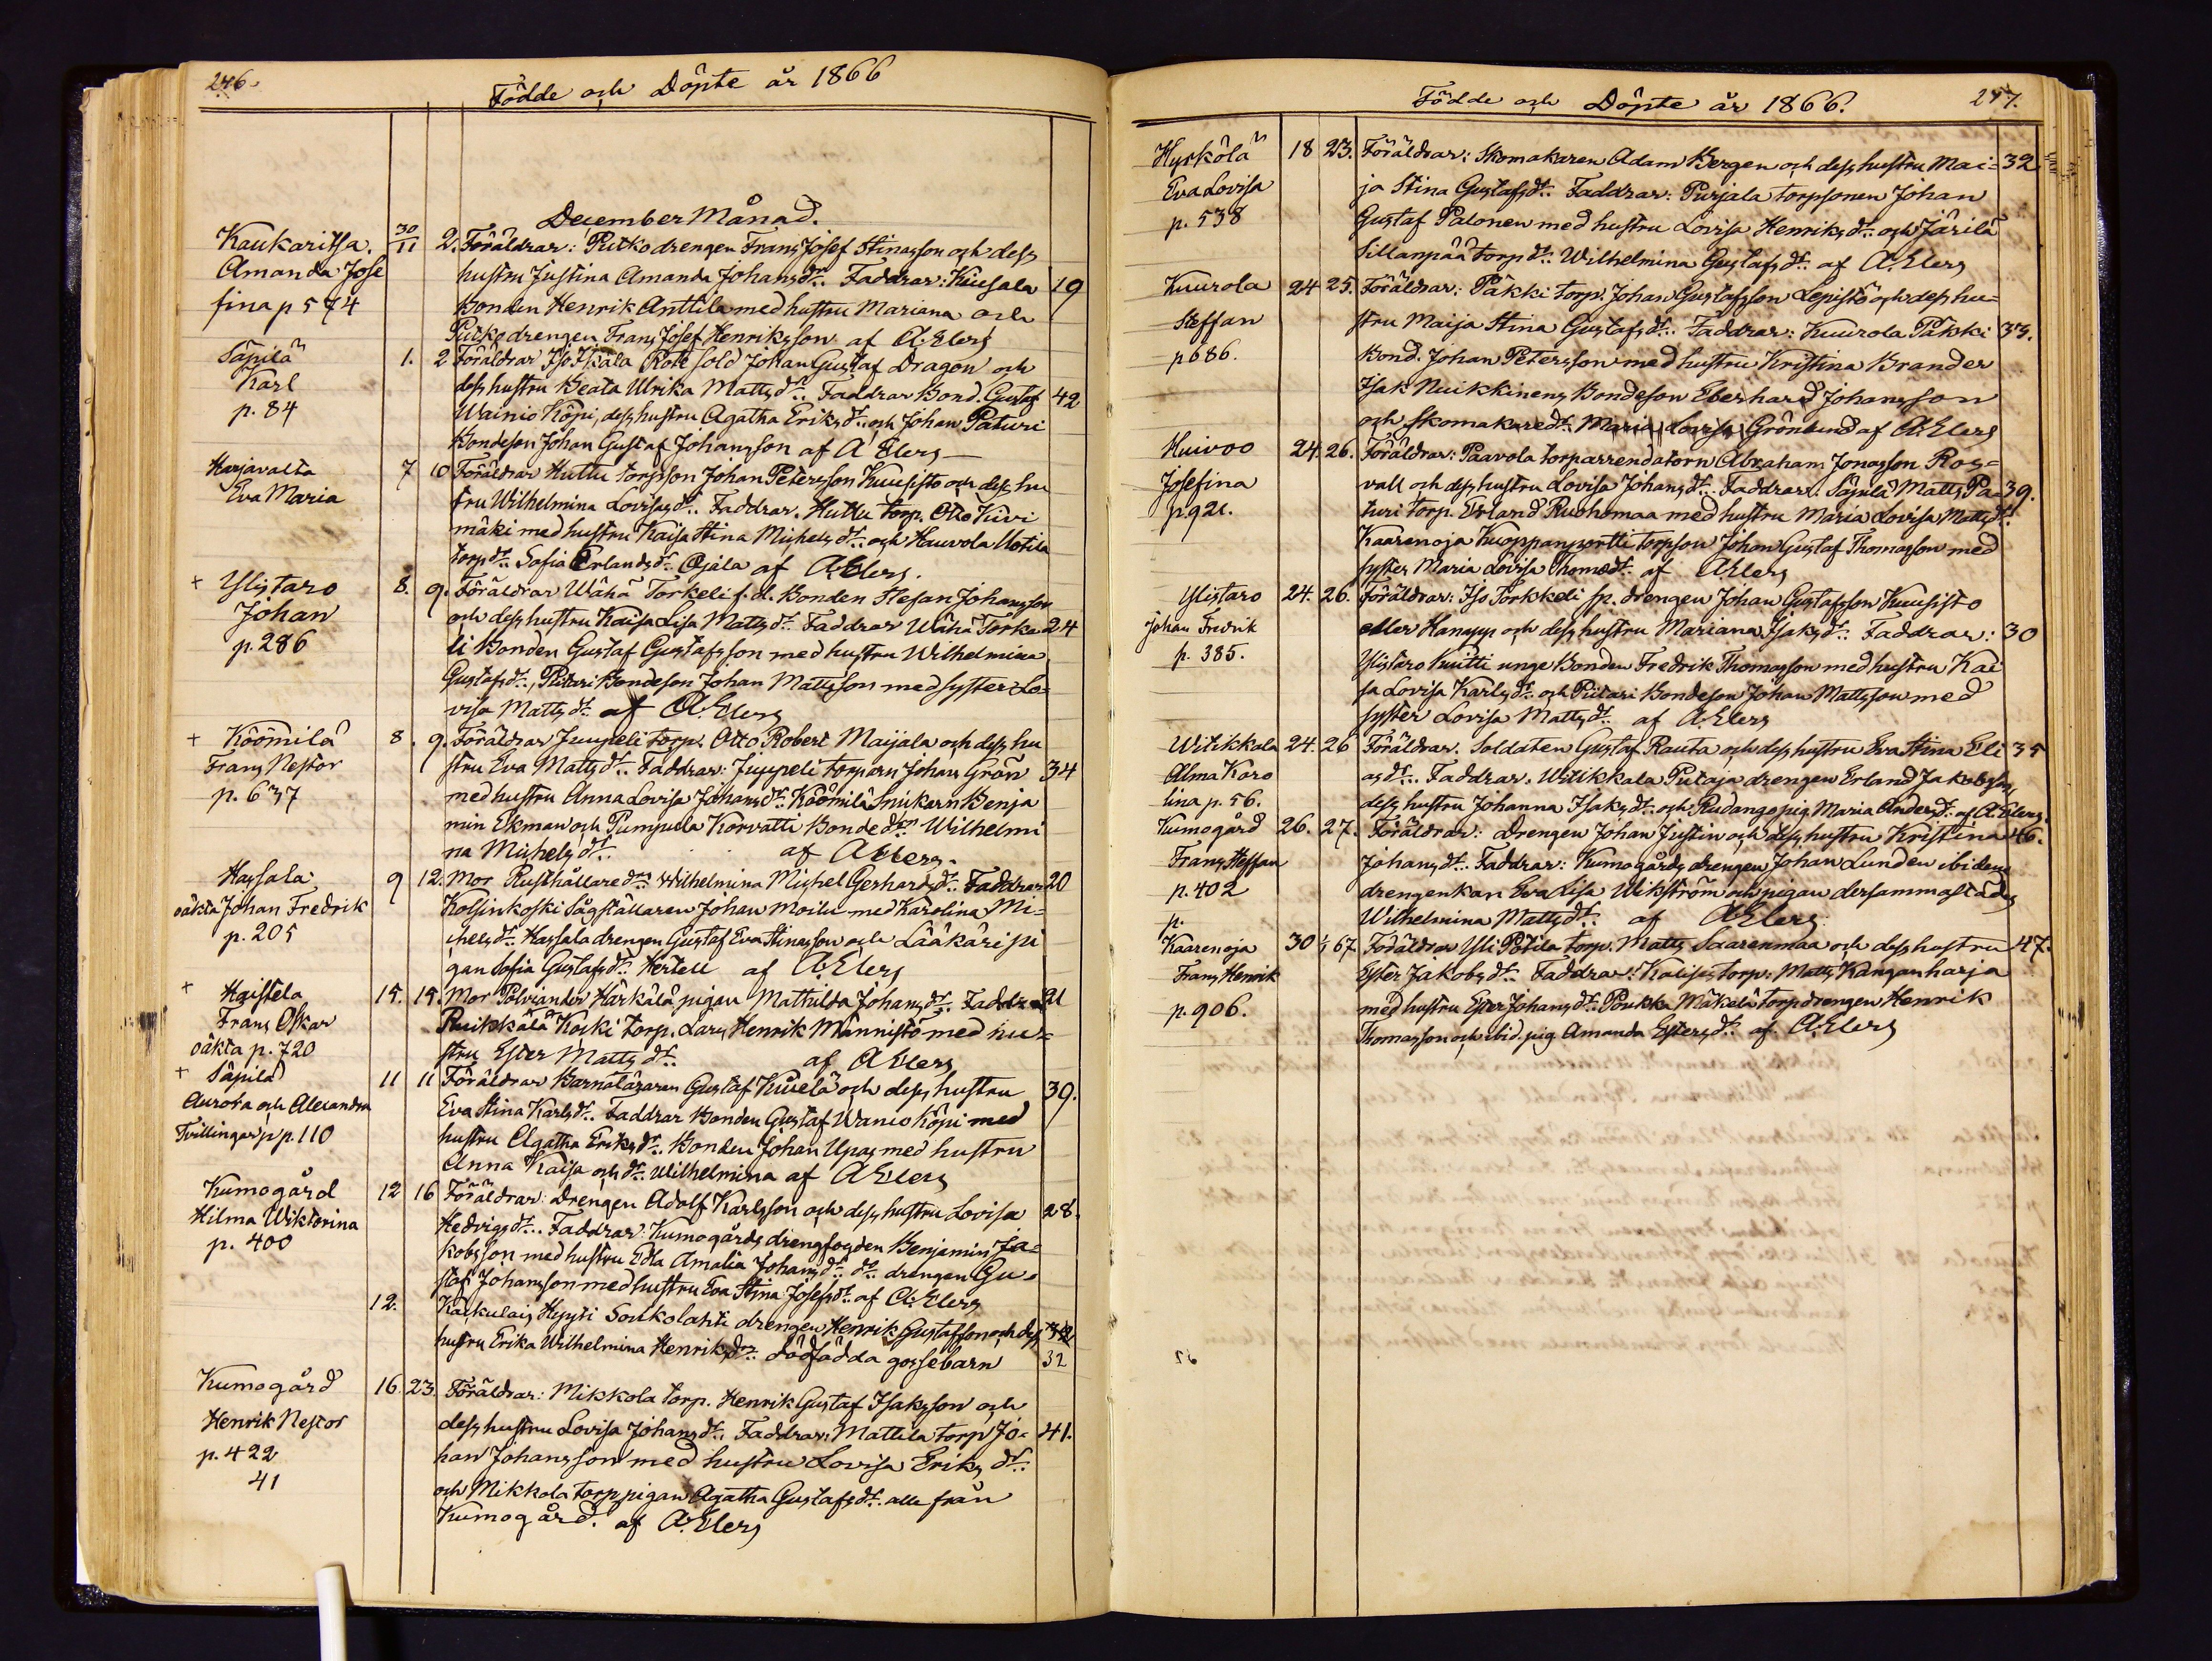 246.
Födde och Döpte år 1866
December Månad.
Kaukaritsa. 30/11 2. Föräldrar: Putko drengen Frans Josef Stinasson och dess
Amanda Jose hustru Justina Amanda Johansdr. Faddrar: Kiusala 19
fina p 574 Bonden Henrik Anttila med hustru Mariana och
Putko drengen Frans Josef Henriksson af A. Elers
Säpilä 1. 2 Föräldrar Iso Iskala Rote Sold Johan Gustaf Dragon och
Karl dess hustru Beata Ulrika Mattsdr. Faddrar Bond. Gustaf 42
p. 84 Wainio Köpi, dess hustru Agatha Eriksdr. och Johan Paturi
Bondeson Johan Gustaf Johansson af A Elers
Harjavalta 7 10 Föräldrar Huttu torpsson Johan Petersson Kuusisto och dess hu
Eva Maria stru Wilhelmina Lovisasdr. Faddrar. Huttu torp. Otto Kivi
mäki med hustru Kaisa Stina Michelsdr. och Hauvola Uotila
torpdr. Sofia Erlandsdr. Ojala af A. Elers.
+ Ylistaro 8. 9. Föräldrar Wähä Torkeli f. d. Bonden Stefan Johansson
Johan och dess hustru Kaisa Lisa Mattsdr. Faddrar Wähä Torke 24
p. 286 li Bonden Gustaf Gustafsson med hustru Wilhelmina
Gustafsdr., Piitari Bondeson Johan Mattsson med syster Lo=
visa Mattsdr. af A. Elers
+ Köömilä 8. 9. Föräldrar Juupeli torp. Otto Robert Maijala och dess hu
Frans Nestor stru Eva Mattsdr. Faddrar: Juppeli torparn Johan Grön 34
p. 637 med hustru Anna Lovisa Johansdr. Köömilä Snickarn Benja
min Ekman och Pumpula Korvatti Bondedr. Wilhelmi
na Michelsdr. af A Elers.
Hassala 9 12. Mor Rusthållaredr. Wilhelmina Michel Gerhardsdr. Faddrar 20
oäkta Johan Fredrik Kolsinkoski Sågställaren Johan Moilu med Karolina Mi=
p. 205 chelsdr. Hassala drengen Gustaf Eva Stinasson och Lääkäri pi
gan Sofia Gustafsdr. Hertell af A. Elers
+ Haistela 15. 15. Mor Polviander Härkälä pigan Mathilda Johansdr. Faddrar 21
Frans Oskar Ruikkälä Koski torp. Lars Henrik Männistö med hu=
oäkta p. 720 stru Ester Mattsdr. af A Elers
+ Säpilä 11 11 Föräldrar Barnaläraren Gustaf Kuuelä och dess hustru 39.
Aurora och Alexandra Eva Stina Karlsdr. Faddrar Bonden Gustaf Wanio Köpi med
Tvillingar p p. 110 hustru Agatha Eriksdr. Bonden Johan Upas med hustru
Anna Kaisa och dr. Wilhelmina af A Elers
Kumogård 12 16 Föräldrar: Drengen Adolf Karlsson och dess hustru Lovisa 28.
Hilma Wiktorina Hedvigsdr. Faddrar: Kumogårds drengfogden Benjamin Ja=
p. 400 kobsson med hustru Edla Amalia Johansdr. do. drengen Gu=
staf Johansson med hustru Eva Stina Josefsdr. af A. Elers
12. Karkulais Hyyti Soukolahti drengen Henrik Gustafsson och dess
hustru Erika Wilhelmina Henriksdr. dödfödda gossebarn 32
Kumogård 16. 23. Föräldrar: Mikkola torp. Henrik Gustaf Isaksson och
Henrik Nestor dess hustru Lovisa Johansdr. Faddrar: Mattila torp Jo= 41.
p. 422 han Johansson med hustru Lovisa Eriks dr.
41 och Mikkola torp pigan Agatha Gustafsdr. alla från
Kumogård. af A. Elers
Födde och Döpte år 1866.
247.
Hyrkölä 18 23. Föräldrar: Skomakaren Adam Bergen och dess hustru Mai= 32
Eva Lovisa ja Stina Gustafsdr. Faddrar: Purjala torpsonen Johan
p. 538 Gustaf Palonen med hustru Lovisa Henriksdr. och Järilä
Sillanpää torpdr. Wilhelmina Gustafsdr. af A. Elers
Kuurola 24 25. Föräldrar: Päkki torp. Johan Gustafsson Lepistö och dess hu=
Steffan stru Maija Stina Gustafsdr. Faddrar: Kuurola Päkki 33.
p 686. Bond. Johan Petersson med hustru Kristina Brander
Isak Nuikkinens Bondeson Eberhard Johansson
och Skomakaredr. Maria Lovisa Grönlund af A. Elers
Huivoo 24. 26. Föräldrar: Paavola torparrendatorn Abraham Jonasson Ros=
Josefina vall och dess hustru Lovisa Johansdr. Faddrar: Säpilä Matts Pa= 39.
p. 921. turi torp. Erland Ruohomaa med hustru Maria Lovisa Mattsdr.
Kaarenoja Kuoppanportti torpson Johan Gustaf Thomasson med
syster Maria Lovisa Thomasdr. af A Elers
Ylistaro 24. 26. Föräldrar: Iso Torkkeli sp. drengen Johan Gustafsson Kuusisto
Johan Fredrik eller Hanypp och dess hustru Mariana Isaksdr. Faddrar: 30
p. 385. Ylistaro Knutti unge Bonden Fredrik Thomasson med hustru Kai
sa Lovisa Karlsdr. och Piitari Bondeson Johan Mattsson med
syster Lovisa Mattsdr. af A. Elers
Witikkala 24. 26 Föräldrar. Soldaten Gustaf Rauta och dess hustru Eva Stina Eli 35
Alma Karo asdr. Faddrar. Witikkala Putaja drengen Erland Jakobsson,
lina p. 56. dess hustru Johanna Isaksdr. och Rudango pig. Maria Andersdr. af A. Elers.
Kumogård 26. 27. Föräldrar: Drengen Johan Justin och dess hustru Kristina 46.
Frans Steffan Johansdr. Faddrar: Kumogårds drengen Johan Lunden ibidem
p. 402 drengenkan Eva Lisa Wikström och pigan dersammastädes
p. Wilhelmina Mattsdr. af A Elers
Kaarenoja 30 1/1 67 Föräldrar Yli Potila torp. Matts Saarenmaa och dess hustru 47.
Frans Henrik Ester Jakobsdr. Faddrar: Kalisis torp: Matts Kanganharja
p. 906. med hustru Ester Johansdr. Poukka Mäkelä torpdrengen Henrik
Thomasson och ibid. pig. Amanda Estersdr. af A. Elers